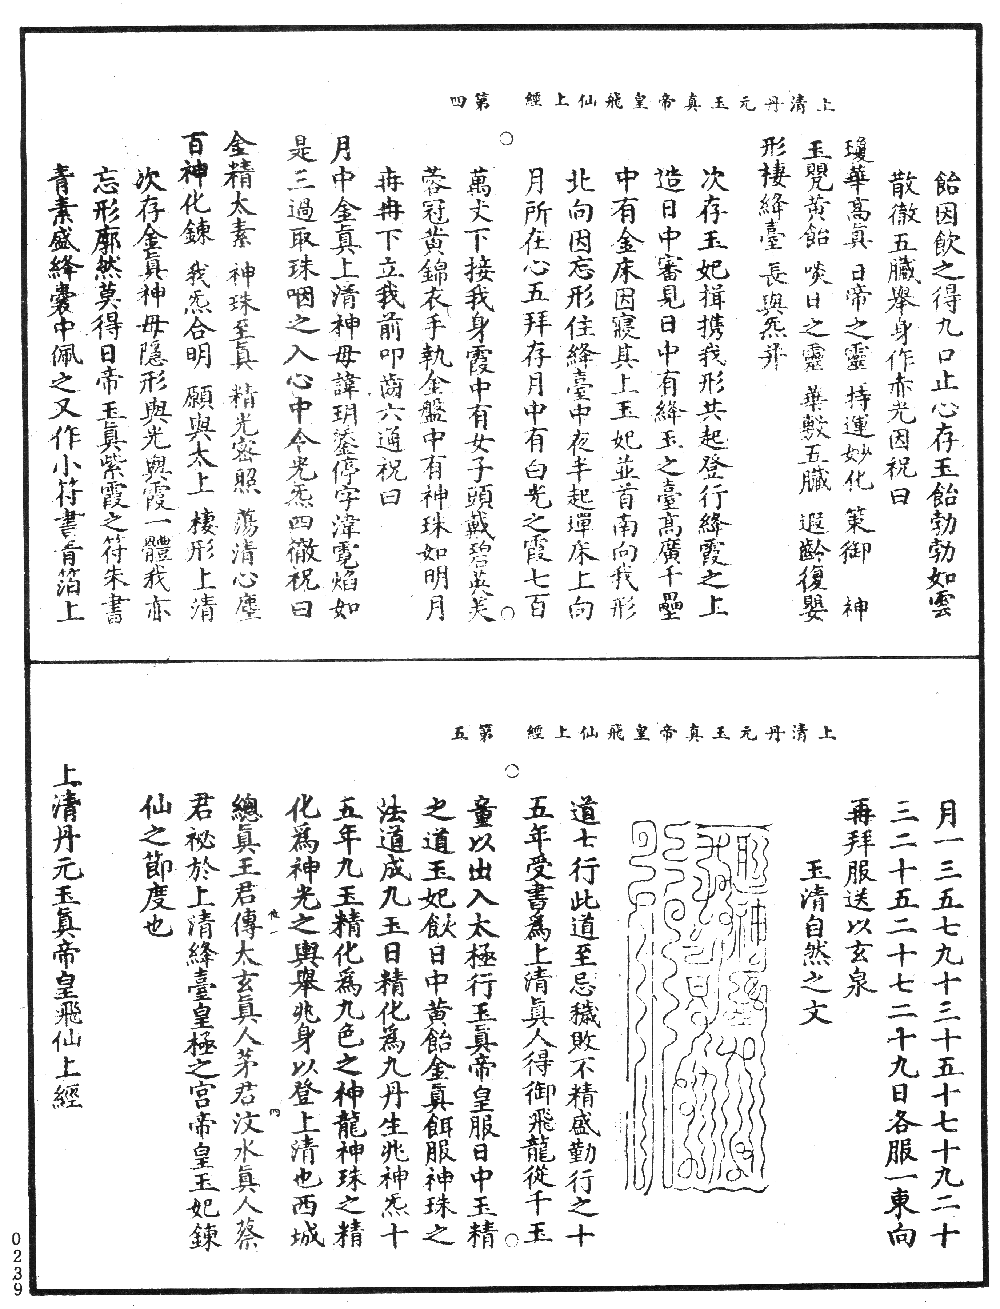 上清丹元玉真帝皇飛仙上經　第四
飴因飲之得九口止心存玉飴勃勃如雲
散徹五臟舉身作赤光因祝曰
瓊華高真　日帝之靈　持運妙化　策御　神
玉覺黃飴　啖日之靈　華敷五臟　遐齡復嬰
形棲絳臺　長與炁并
次存玉妃揖携我形共起登行絳霞之上
造日中審見日中有絳玉之臺高廣千壘
中有金床因寢其上玉妃並首南向我形
北向因忘形住絳臺中夜半起墠床上向
月所在心五拜存月中有白光之霞七百
萬丈下接我身霞中有女子頭戴碧英芙
蓉冠黃錦衣手執金盤中有神珠如明月
冉冉下立我前叩齒六通祝曰
月中金真上清神母諱玥鍌停字湋霐焰如
是三過取珠咽之入心中令光炁四徹祝曰
金精太素　神珠至真　精光密照　蕩清心塵
百神化鍊　我炁合明　願與太上　棲形上清
次存金真神母隱形與光與霞一體我亦
忘形廓然莫得日帝玉真紫霞之符朱書
青素盛絳囊中佩之又作小符書青箔上
上清丹元玉真帝皇飛仙上經　第五
月一三五七九十三十五十七十九二十
三二十五二十七二十九日各服一東向
再拜服送以玄泉
玉清自然之文
道七行此道至忌穢敗不精盛勤行之十
五年受書爲上清真人得御飛龍從千玉
童以出入太極行玉真帝皇服日中玉精
之道玉妃飲日中黃飴金真餌服神珠之
法道成九玉日精化爲九丹生兆神炁十
五年九玉精化爲九色之神龍神珠之精
化爲神光之輿舉兆身以登上清也西城
總真王君傳太玄真人茅君汶水真人蔡
君祕於上清絳臺皇極之宮帝皇玉妃鍊
仙之節度也
上清丹元玉真帝皇飛仙上經
0239